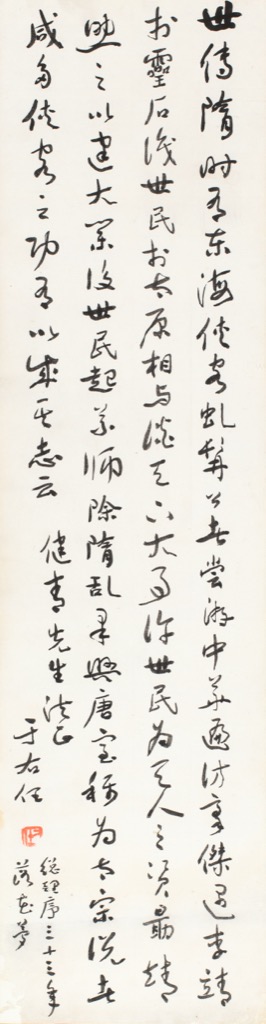 世傳隋時有東海俠客虬髯公者嘗游中華遍訪豪傑遇李靖
於靈石識世民於太原相與談天下大事許世民為天人之資勗靖
助之以建大業後世民起義師除隋亂果興唐室稱為太宗說者
咸多俠客之功有以成其志云
健青先生法正
于右任
總理序三十三年
落花夢